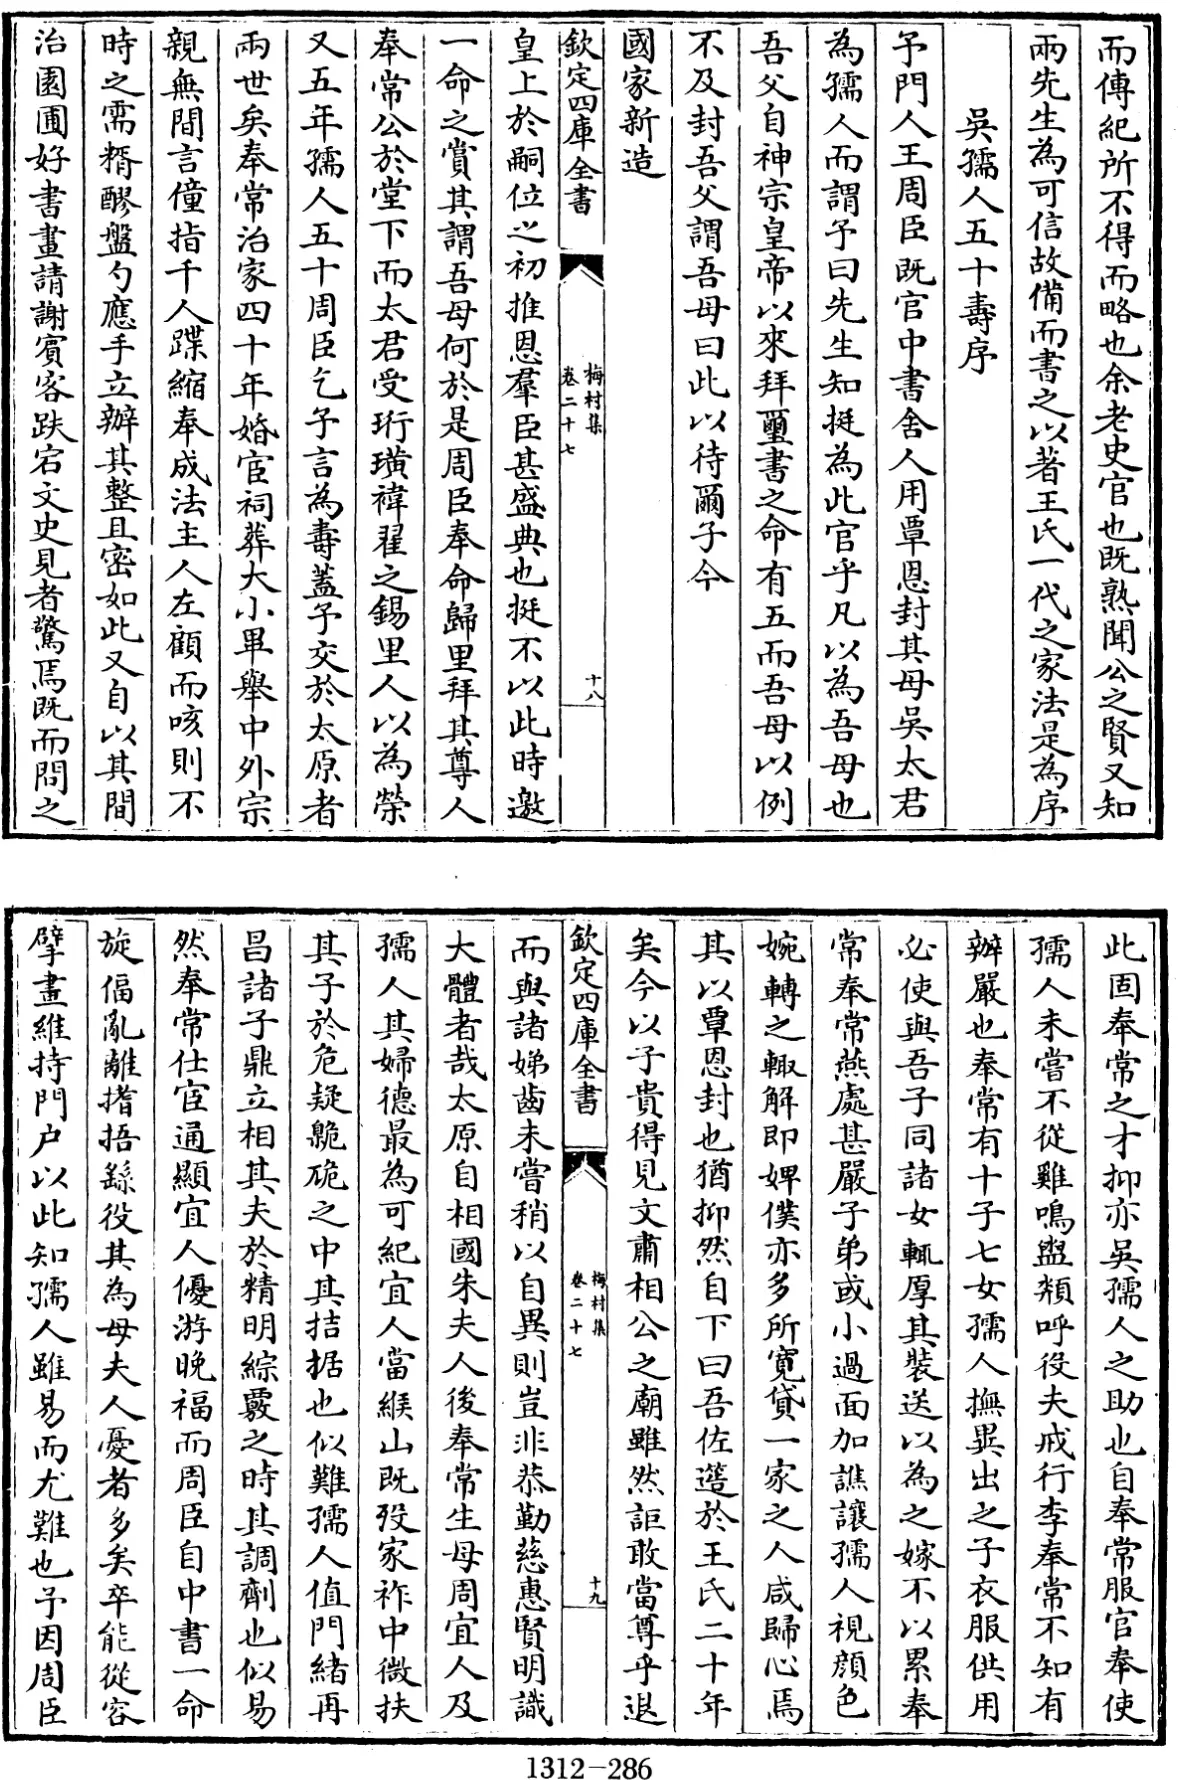 而傳紀所不得而略也余老史官也既熟聞公之賢又知
兩先生為可信故備而書之以著王氏一代之家法是為序
吳孺人五十壽序
予門人王周臣既官中書舍人用覃恩封其母吳太君
為孺人而謂予曰先生知挺為此官乎凡以為吾母也
吾父自神宗皇帝以來拜璽書之命有五而吾母以例
不及封吾父謂吾母曰此以待爾子今
國家新造
欽定四庫全書
梅村集
卷二十七
十八
皇上於嗣位之初推恩羣臣甚盛典也挺不以此時邀
一命之賞其謂吾母何於是周臣奉命歸里拜其尊人
奉常公於堂下而太君受珩璜褘翟之錫里人以為榮
又五年孺人五十周臣乞予言為壽蓋予交於太原者
兩世矣奉常治家四十年婚宦祠葬大小畢舉中外宗
親無間言僮指千人蹀縮奉成法主人左顧而咳則不
時之需糈醪盤勺應手立辦其整且密如此又自以其間
治園圃好書畫請謝賓客跌宕文史見者驚焉既而問之
此固奉常之才抑亦吳孺人之助也自奉常服官奉使
孺人未嘗不從雞鳴盥頮呼役夫戒行李奉常不知有
辦嚴也奉常有十子七女孺人撫異出之子衣服供用
必使與吾子同諸女輒厚其裝送以為之嫁不以累奉
常奉常燕處甚嚴子弟或小過面加譙讓孺人視顔色
婉轉之輙解即婢僕亦多所寬貸一家之人咸歸心焉
其以覃恩封也猶抑然自下曰吾佐簉於王氏二十年
矣今以子貴得見文肅相公之廟雖然詎敢當尊乎退
欽定四庫全書
梅村集
卷二十七
十九
而與諸娣齒未嘗稍以自異則豈非恭勤慈惠賢明識
大體者哉太原自相國朱夫人後奉常生母周宜人及
孺人其婦德最為可紀宜人當緱山既歿家祚中微扶
其子於危疑臲卼之中其拮据也似難孺人值門緒再
昌諸子鼎立相其夫於精明綜覈之時其調劑也似易
然奉常仕宦通顯宜人優游晚福而周臣自中書一命
旋偪亂離搘捂繇役其為母夫人憂者多矣卒能從容
擘畫維持門户以此知孺人雖易而尤難也予因周臣
1312-286